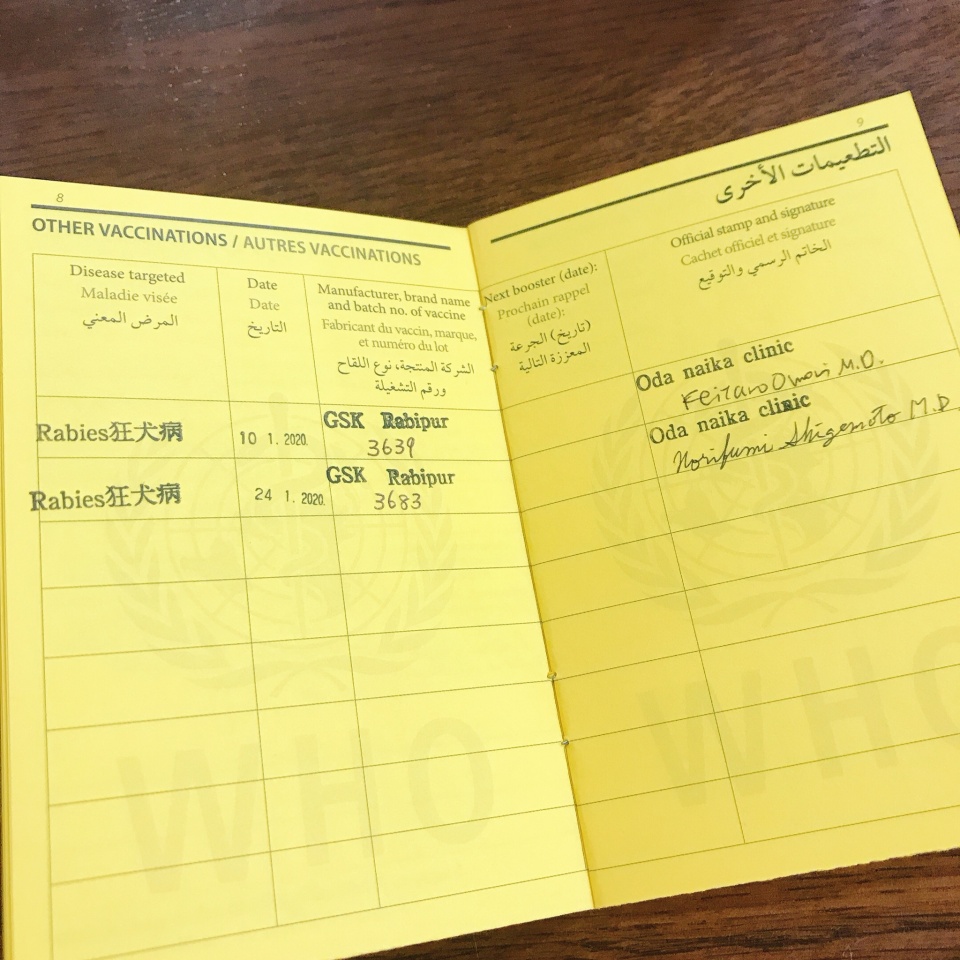 8
OTHER VACCINATIONS / AUTRES VACCINATIONS
Disease targeted
Maladie visée
المرض المعني
Date
Date
التاريخ
Manufacturer, brand name
and batch no. of vaccine
Fabricant du vaccin, marque,
et numéro du lot
الشركة المنتجة، نوع اللقاح
ورقم التشغيلة
Rabies狂犬病
10 1. 2020.
GSK Rabipur
3639
Rabies狂犬病
24 1. 2020.
GSK Rabipur
3683
WHO
9
التطعيمات الأخرى
Next booster (date):
Prochain rappel
(date):
(تاريخ) الجرعة
المعززة التالية
Official stamp and signature
Cachet officiel et signature
الخاتم الرسمي والتوقيع
Oda naika clinic
Omori M.D.
Oda naika clinic
Norifumi Shigemoto M.D
WHO